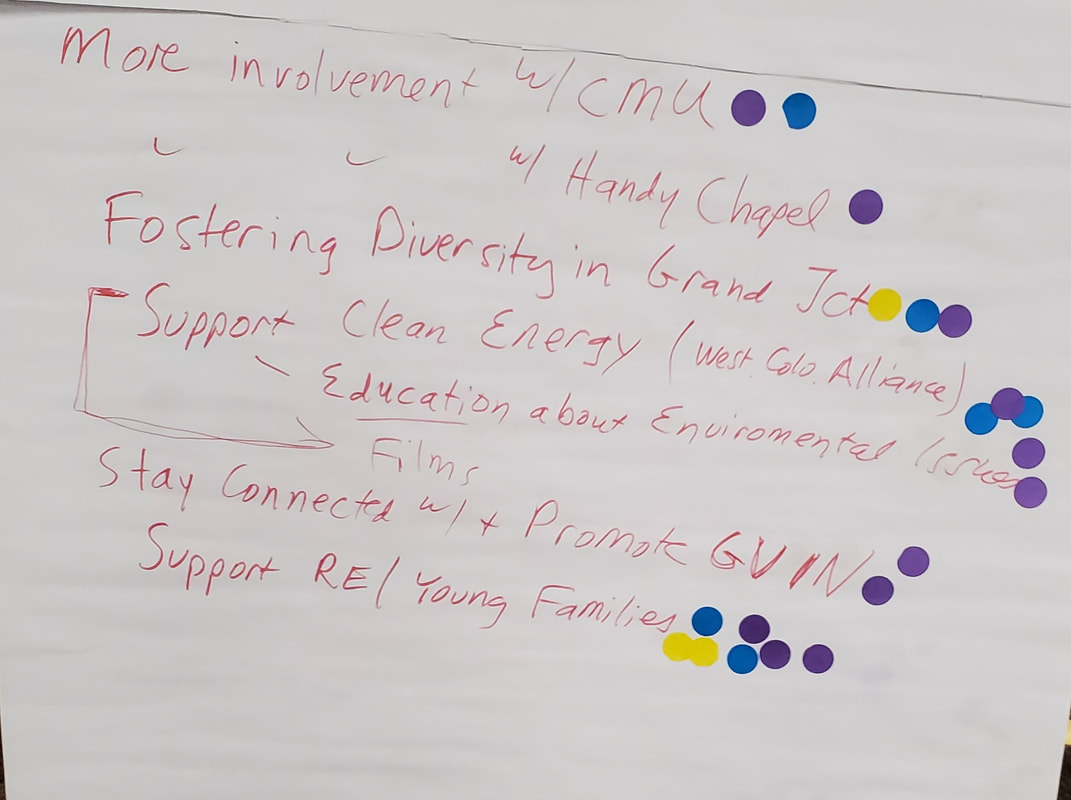 More involvement w/ CMU
" " w/ Handy Chapel
Fostering Diversity in Grand Jct
Support Clean Energy (West. Colo. Alliance)
Education about Enviromental Issues
Films
Stay Connected w/ + Promote GVIN
Support RE/Young Families